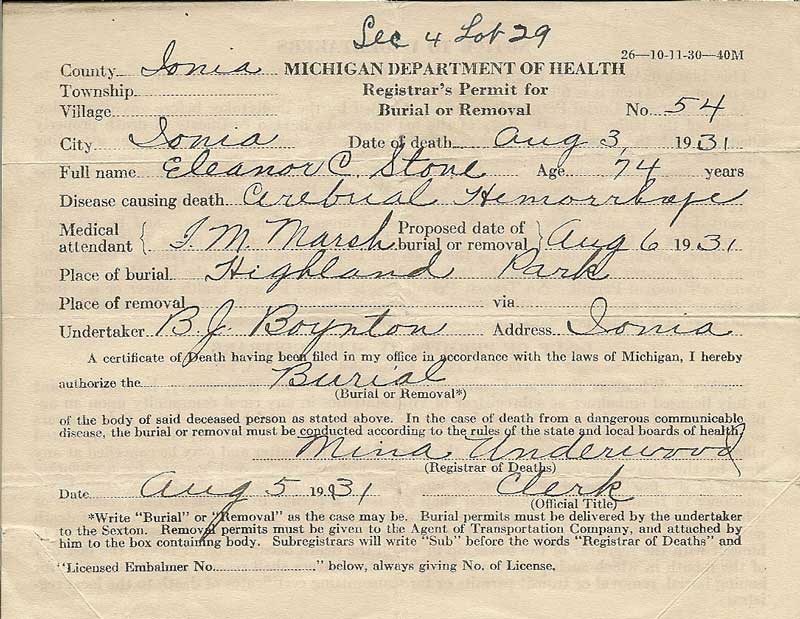 Sec 4 Lot 29
26—10-11-30—40M
County Ionia MICHIGAN DEPARTMENT OF HEALTH
Township Registrar's Permit for
Village Burial or Removal No. 54
City Ionia Date of death Aug 3, 1931
Full name Eleanor C. Stone Age 74 years
Disease causing death Cerebual Hemorrhage
Medical attendant { I. M. Marsh Proposed date of burial or removal } Aug 6 1931
Place of burial Highland Park
Place of removal via
Undertaker B. J. Boynton Address Ionia
A certificate of Death having been filed in my office in accordance with the laws of Michigan, I hereby
authorize the Burial
(Burial or Removal*)
of the body of said deceased person as stated above. In the case of death from a dangerous communicable
disease, the burial or removal must be conducted according to the rules of the state and local boards of health.
Mina Underwood
(Registrar of Deaths)
Date Aug 5 1931 Clerk
(Official Title)
*Write "Burial" or "Removal" as the case may be. Burial permits must be delivered by the undertaker
to the Sexton. Removal permits must be given to the Agent of Transportation Company, and attached by
him to the box containing body. Subregistrars will write "Sub" before the words "Registrar of Deaths" and
"Licensed Embalmer No. " below, always giving No. of License.